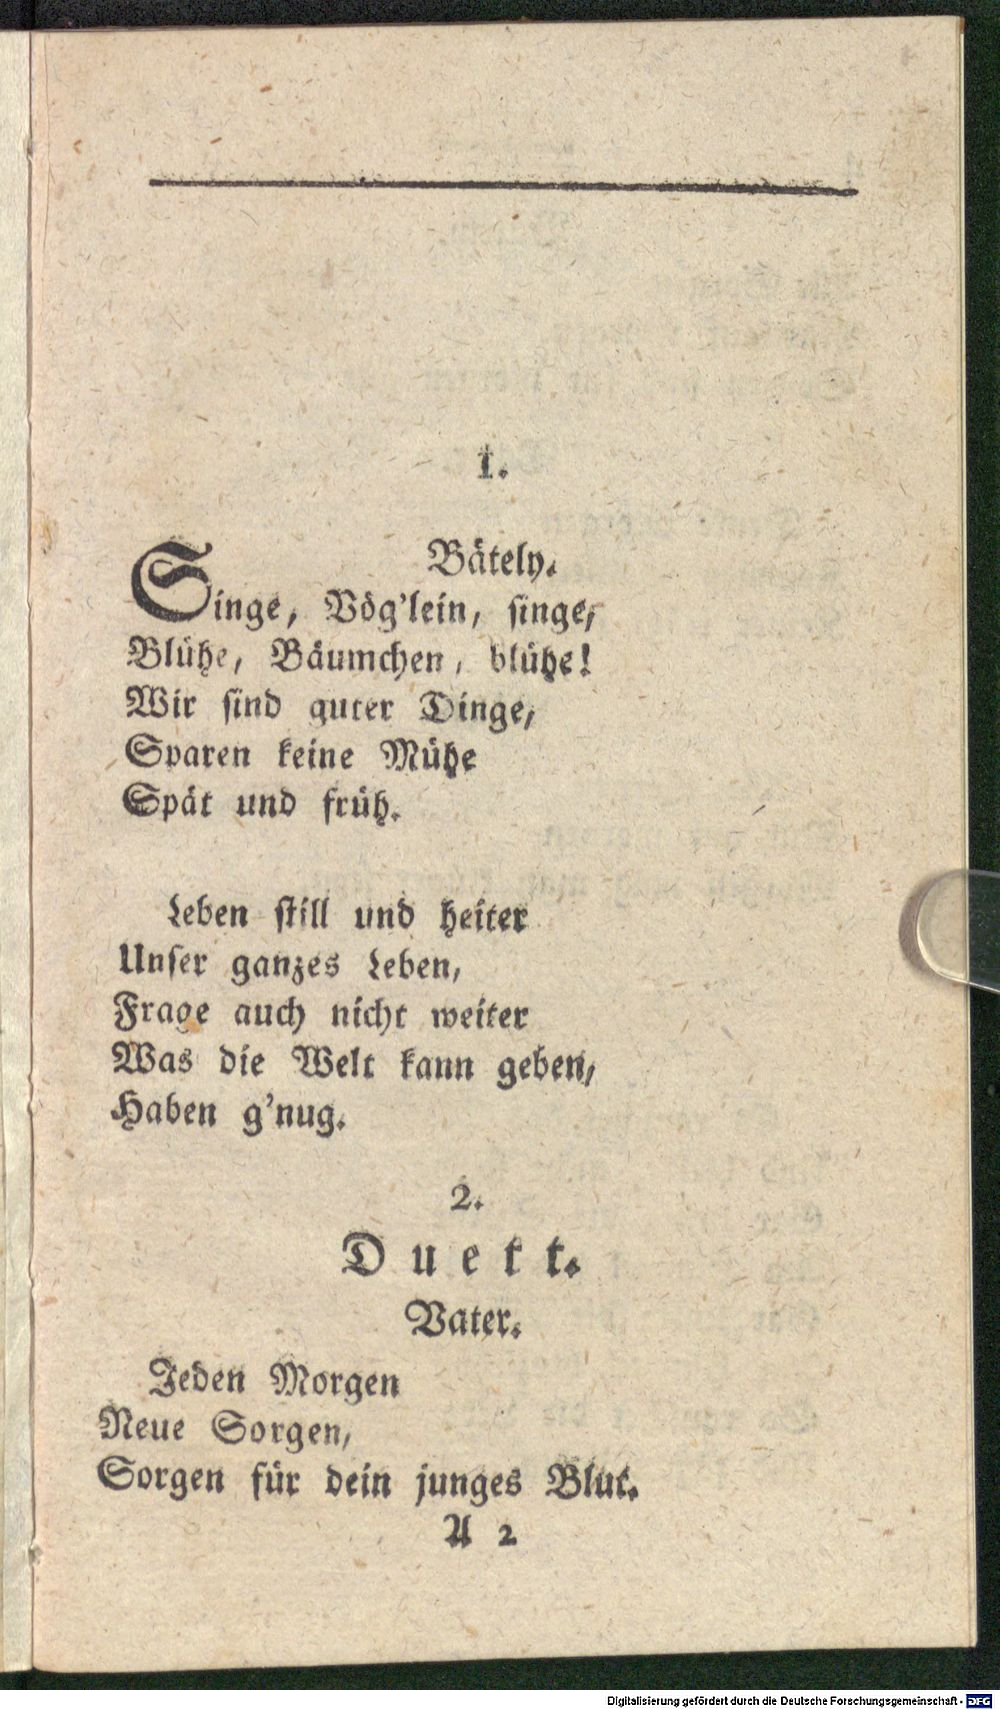 1.
Bätely.
Singe, Vög'lein, singe,
Blühe, Bäumchen, blühe!
Wir sind guter Dinge,
Sparen keine Mühe
Spät und früh.
Leben still und heiter
Unser ganzes Leben,
Frage auch nicht weiter
Was die Welt kann geben,
Haben g'nug.
2.
Duett.
Vater.
Jeden Morgen
Neue Sorgen,
Sorgen für dein junges Blut.
A 2
Digitalisierung gefördert durch die Deutsche Forschungsgemeinschaft - DFG